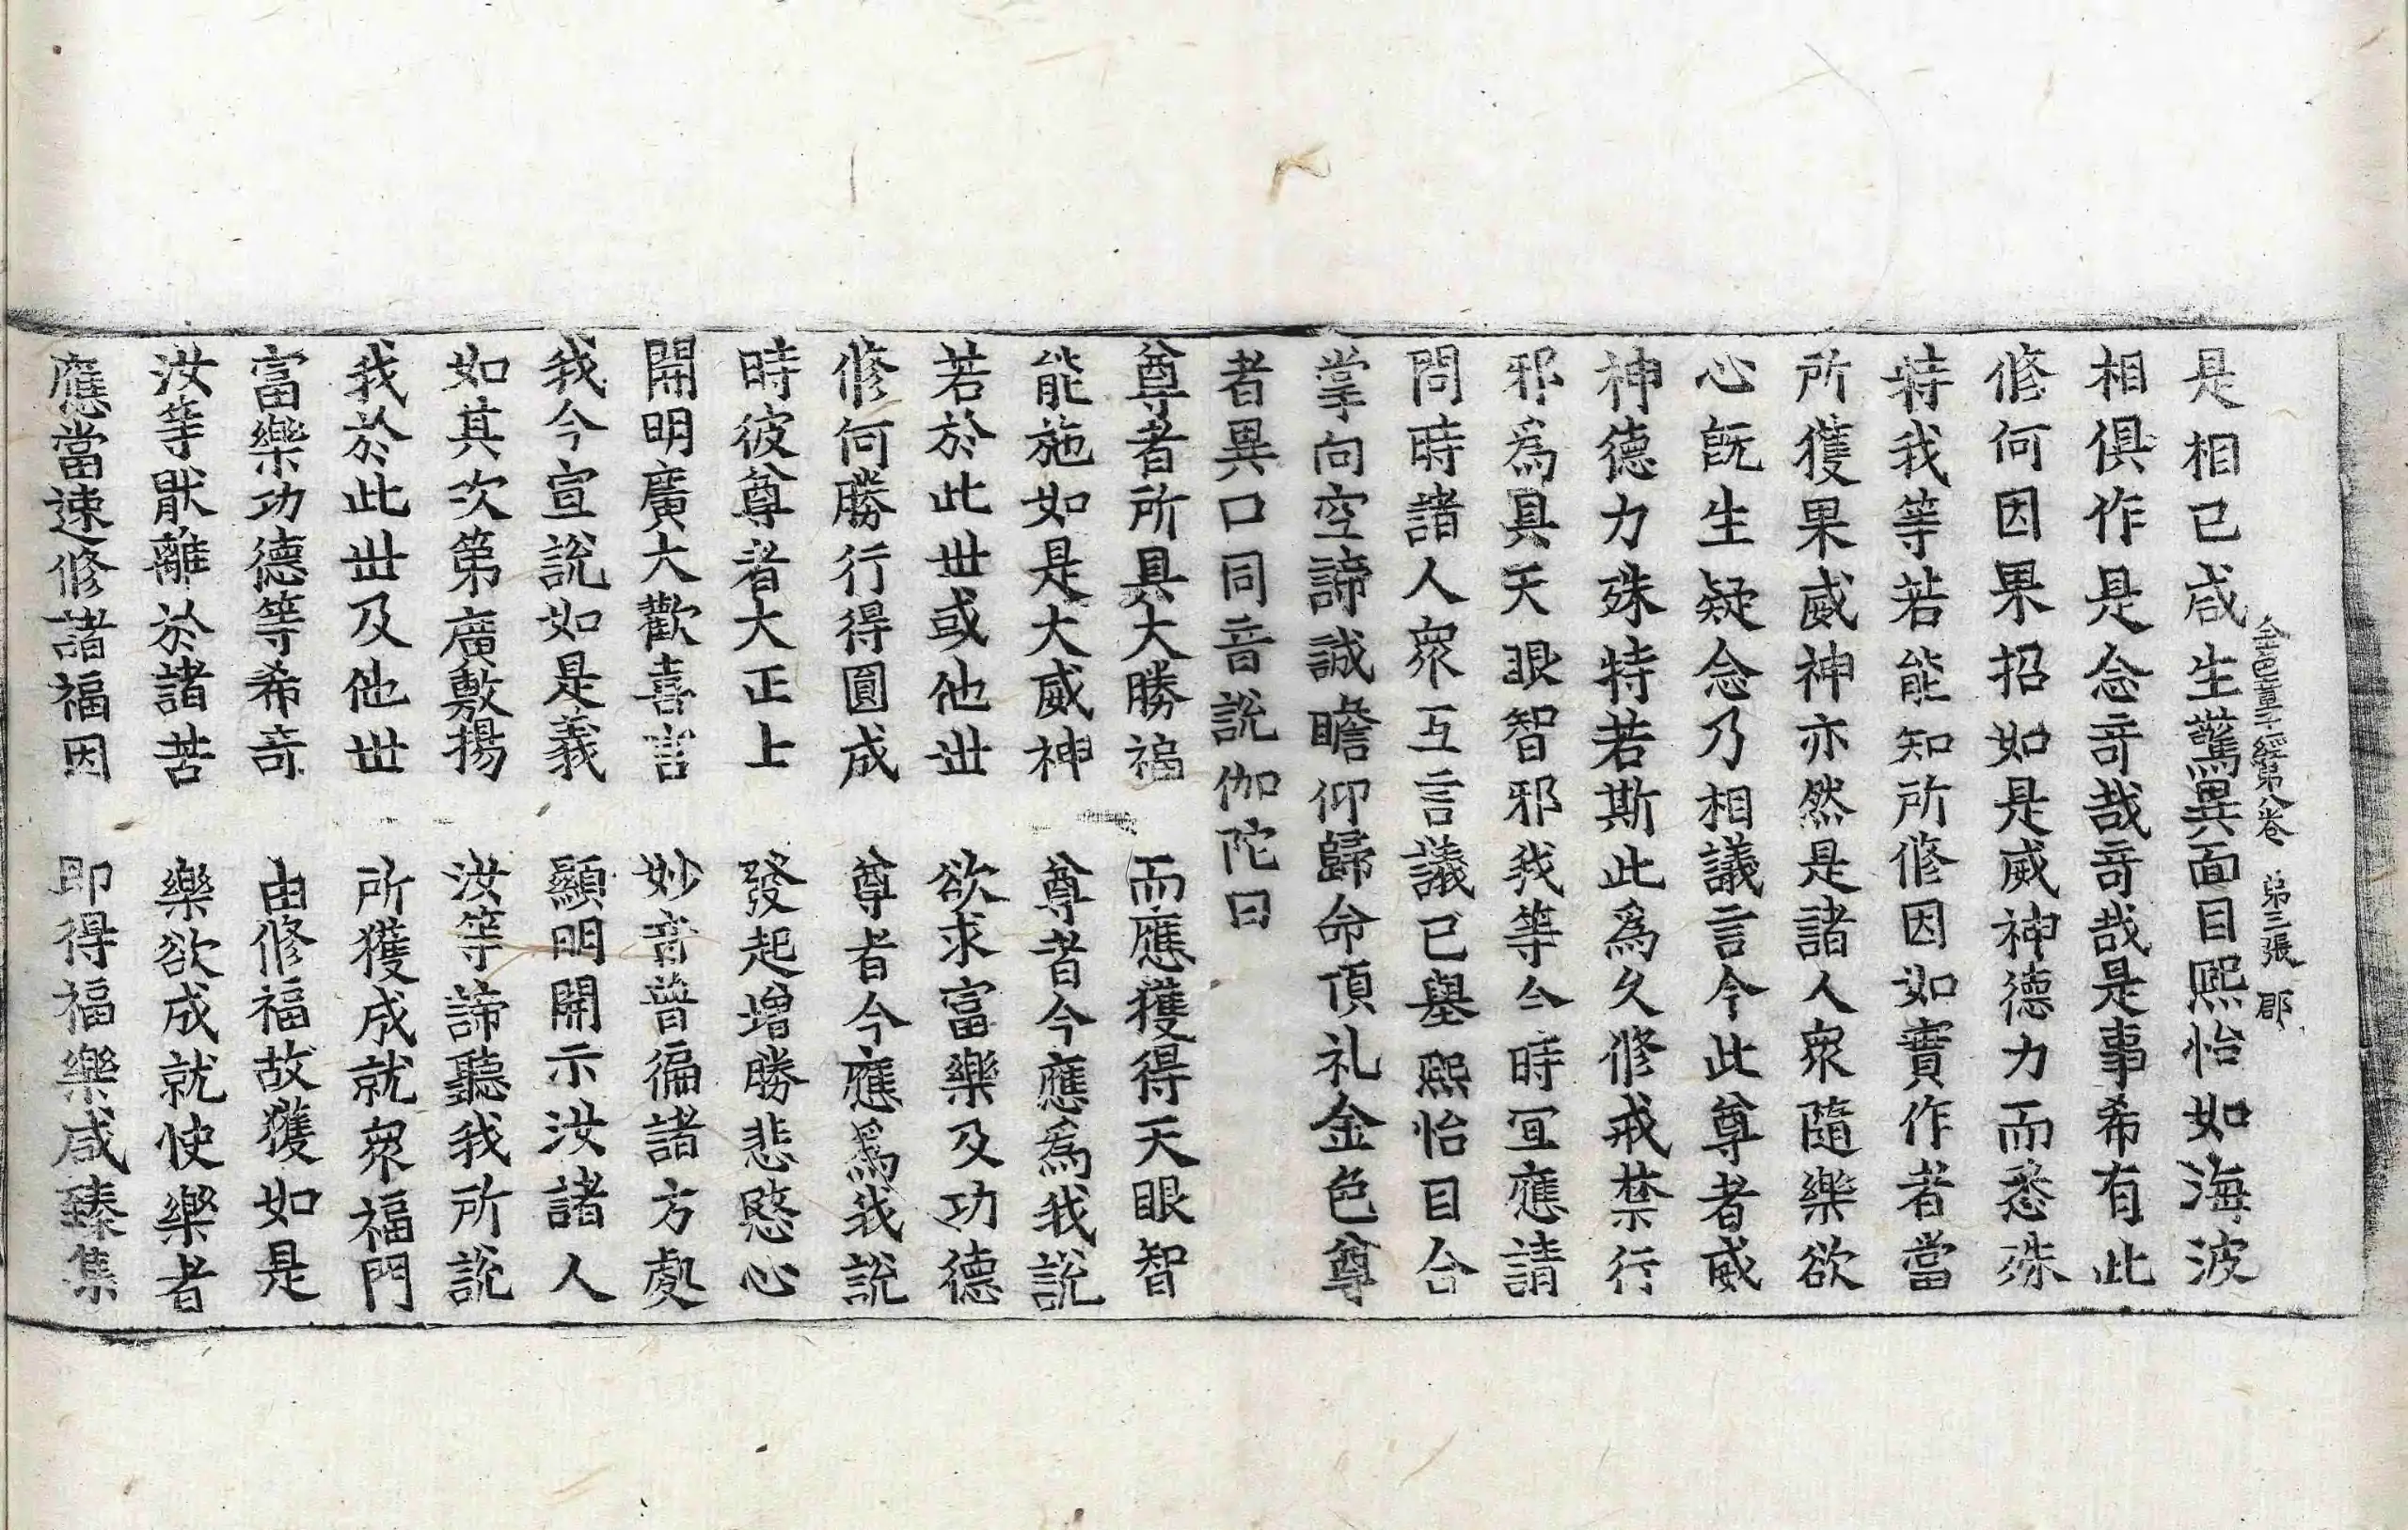 金色童子經第八卷　第三張　郡
是相已咸生驚異面目熙怡如海波
相俱作是念竒哉竒哉是事希有此
修何因果招如是威神德力而悉殊
特我等若能知所修因如實作者當
所獲果威神亦然是諸人衆隨樂欲
心旣生疑念乃相議言今此尊者威
神德力殊特若斯此爲久修戒禁行
邪爲具天眼智邪我等今時冝應請
問時諸人衆互言議已舉熙怡目合
掌向空諦誠瞻仰歸命頂礼金色尊
者異口同音說伽陀曰
尊者所具大勝福　而應獲得天眼智
能施如是大威神　尊者今應爲我說
若於此丗或他丗　欲求富樂及功德
修何勝行得圓成　尊者今應爲我說
時彼尊者大正上　發起增勝悲愍心
開明廣大歡喜言　妙音普徧諸方處
我今宣說如是義　顯明開示汝諸人
如其次第廣敷揚　汝等諦聽我所說
我於此丗及他丗　所獲成就衆福門
富樂功德等希竒　由修福故獲如是
汝等猒離於諸苦　樂欲成就使樂者
應當速修諸福因　即得福樂咸臻集